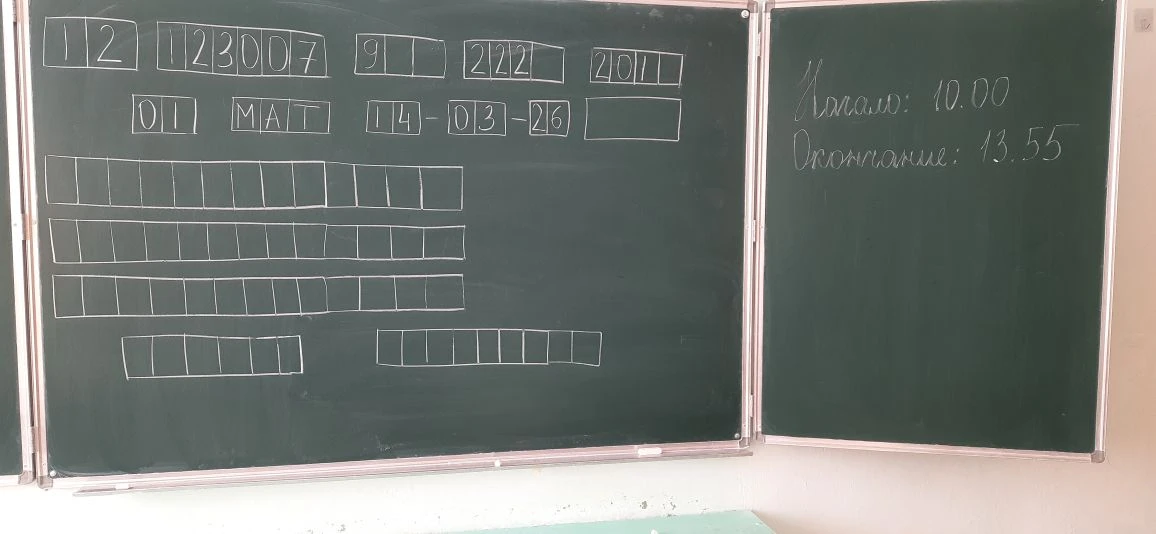 12 123007 9 222 201
01 МАТ 14-03-26
Начало: 10.00
Окончание: 13.55